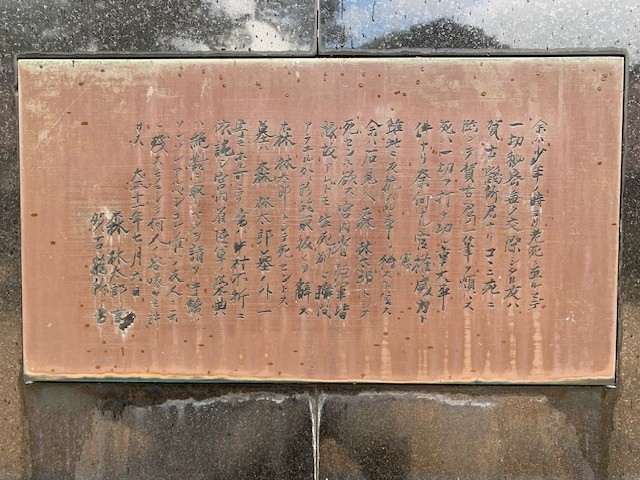 余ハ少年ノ時ヨリ老死ニ至ルマデ
一切秘密無ク交際シタル友ハ
賀古鶴所君ナリ コヽニ死ニ
臨ンテ賀古君ノ一筆ヲ煩ハス
死ハ一切ヲ打チ切ル重大事
件ナリ 奈何ナル官憲威力ト
雖此ニ反抗スル事ヲ得スト信ス
余ハ石見人 森 林太郎トシテ
死セント欲ス 宮内省陸軍皆
縁故アレドモ 生死別ルヽ瞬間
アラユル外形的取扱ヒヲ辞ス
森 林太郎トシテ死セントス
墓ハ 森 林太郎墓ノ外一
字モホル可ラス 書ハ中村不折ニ
依託シ宮内省陸軍ノ栄典
ハ絶対ニ取リヤメヲ請フ 手続ハ
ソレゾレアルベシ コレ唯一ノ友人ニ云
ヒ残スモノニシテ何人ノ容喙ヲモ許
サス 大正十一年七月六日
森 林太郎 言
賀古 鶴所 書